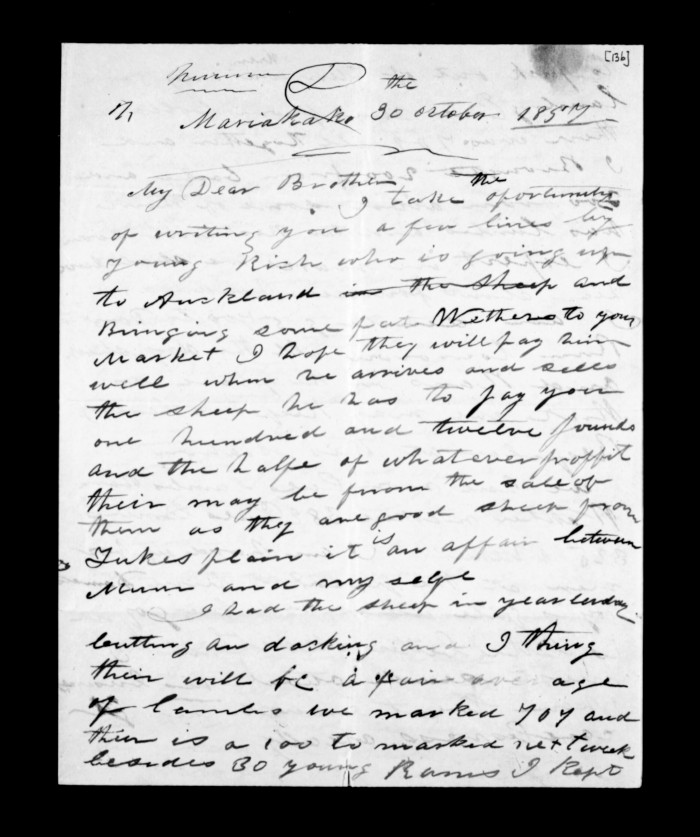 [136]
the
Mariakako 30 october 1857
My Dear Brother the
I take oportunity
of writing you a few lines by
young Rich who is going up
to Auckland in the sheep and
Bringing some Wethers to your
Market I hope they will pay him
well when he arrives and sells
the sheep he has to pay your
one hundred and twelve pounds
and the halfe of whatever proffit
their may be from the sale of
them as they are good sheep from
plain it is an affair between
Munn and my selfe
I had the sheep in yearsterday
cutting an docking and I thing
their will be a fair average
of lambs we marked 707 and
their is a 100 to marked next week
besides 30 young Rams I Kept